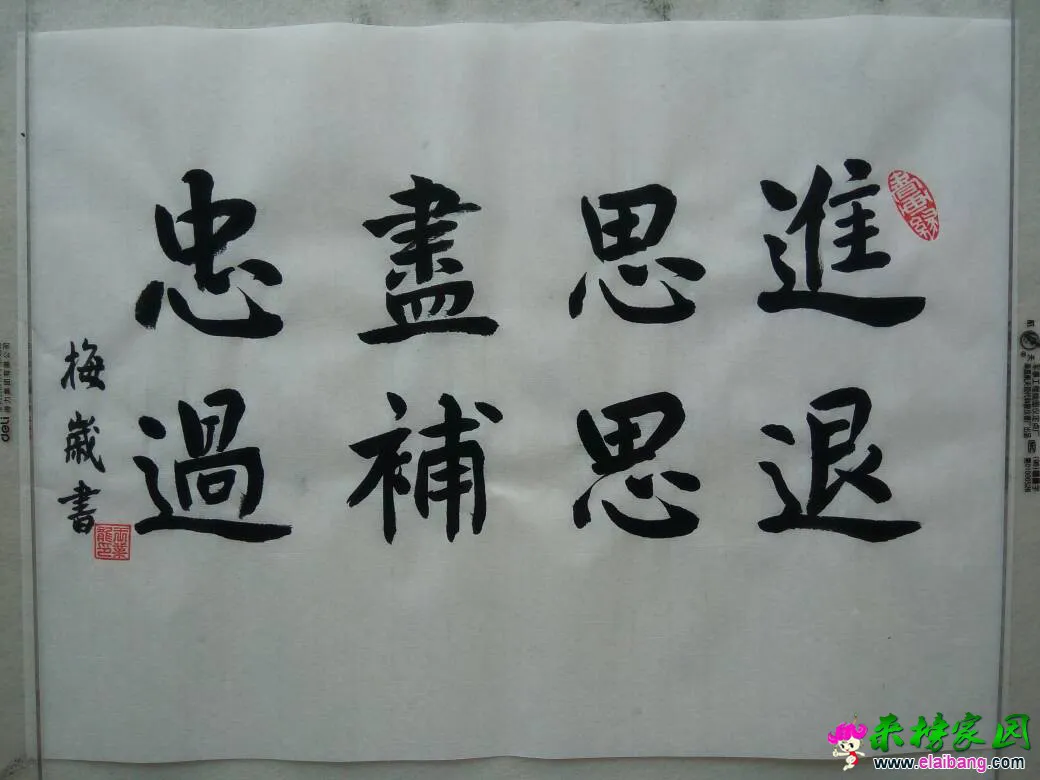 進思盡忠
退思補過
梅歲書
deli
来榜家园
www.elaibang.com